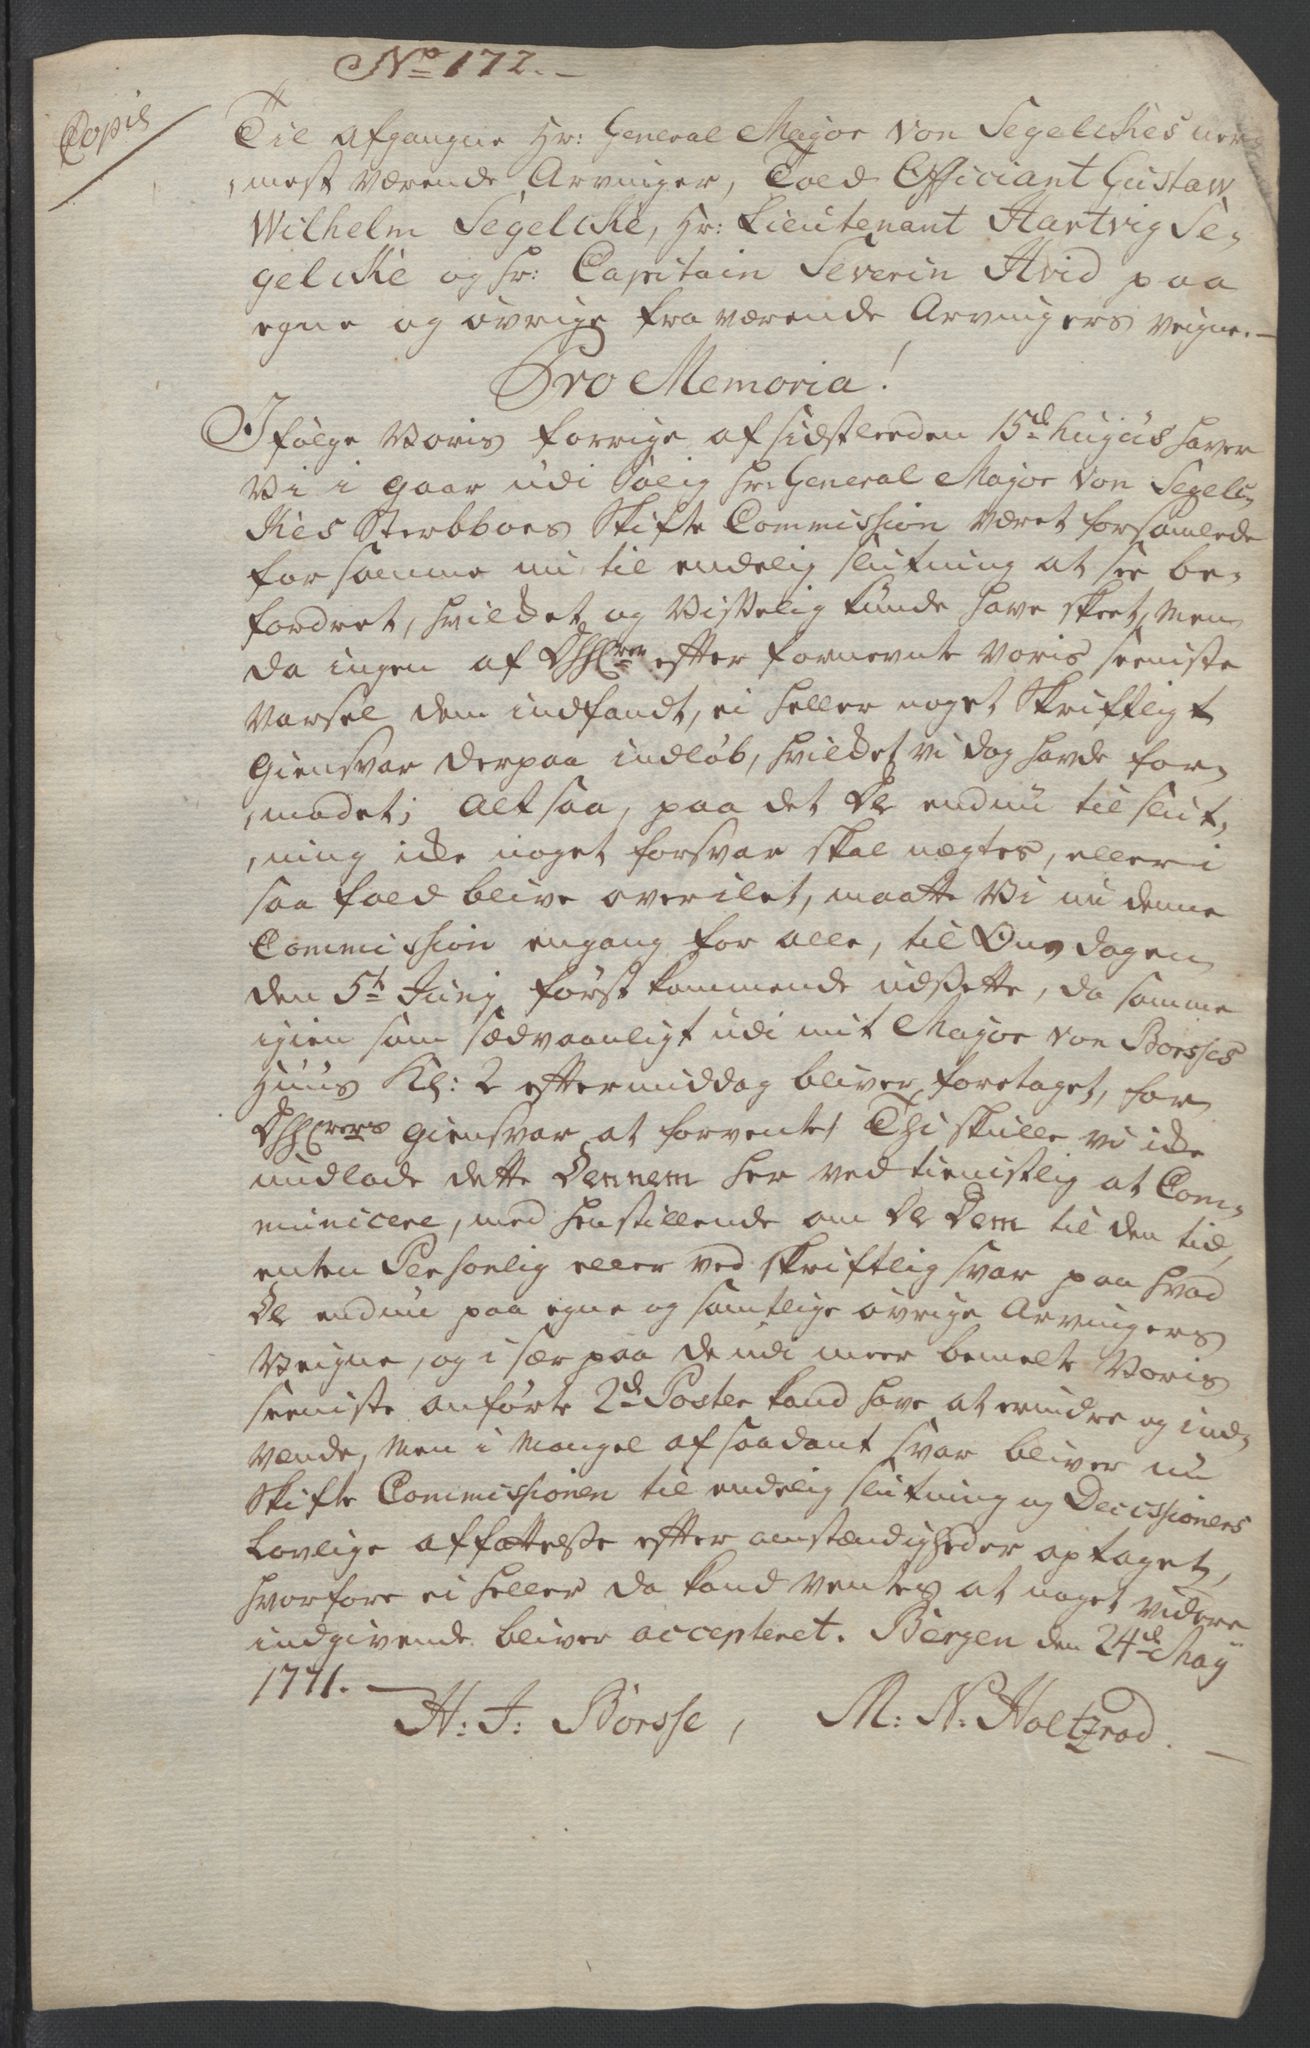 No 172.
Copie
Til afgangne Hr: General Major von Segelckes ner,
mest værende Arvinger, Told Officiant Gustaw
Wilhelm Segelcke, Hr: Lieutenant Hartvig Se,
gelcke og Hr: Capitain Severin Hvid paa
egne og øvrige fraværende Arvingers veigne.
Pro Memoria!
I følge Voris forrige af sidstleeden 15de hujus haver
Vi i gaar udi Salig Hr: General Major von Segel,
ckes Sterbboes Skifte Commission været forsamlede
for samme nu til endelig slutning at see be,
fordret, hvilcket og visselig kunde have skeet, Men
da ingen af DHHrer efter fornevnte Voris seeniste
Varsel dem indfandt, ei heller noget Skriftligt
Giensvar derpaa indløb, hvilcket vi dog havde for,
modet; Alt saa, paa det De endnu til slut,
ning icke noget forsvar skal nægtes, eller i
saa fald blive overilet, maatte Vi nu denne
Commission engang for alle, til Onsdagen
den 5te Junij først kommende udsette, da samme
igien som sædvaanligt udi mit Major von Børsses
Huus Kl: 2 eftermiddag bliver foretaget, for
DHHrers Giensvar at forvente; Thi skulle vi icke
undlade dette Dennem her ved tienistlig at Com,
municere, med henstillende om De Dem til den tid,
enten Personlig eller ved skriftlig svar paa hvad
De endnu paa egne og samtlige øvrige Arvingers
Veigne, og i sær paa de udi meer bemelte Voris
seeniste anførte 2de Poster kand have at erindre og ind,
vende, Men i Mangel af saadant svar bliver nu
Skifte Commissionen til endelig slutning og Decissionens
Lovlige affattelse efter omstændigheder optaget,
hvorfore ei heller da kand ventes at noget videre
indgivende bliver accepteret. Bergen den 24de May
1771.
H: J: Børsse, M: N: Holtzrod.